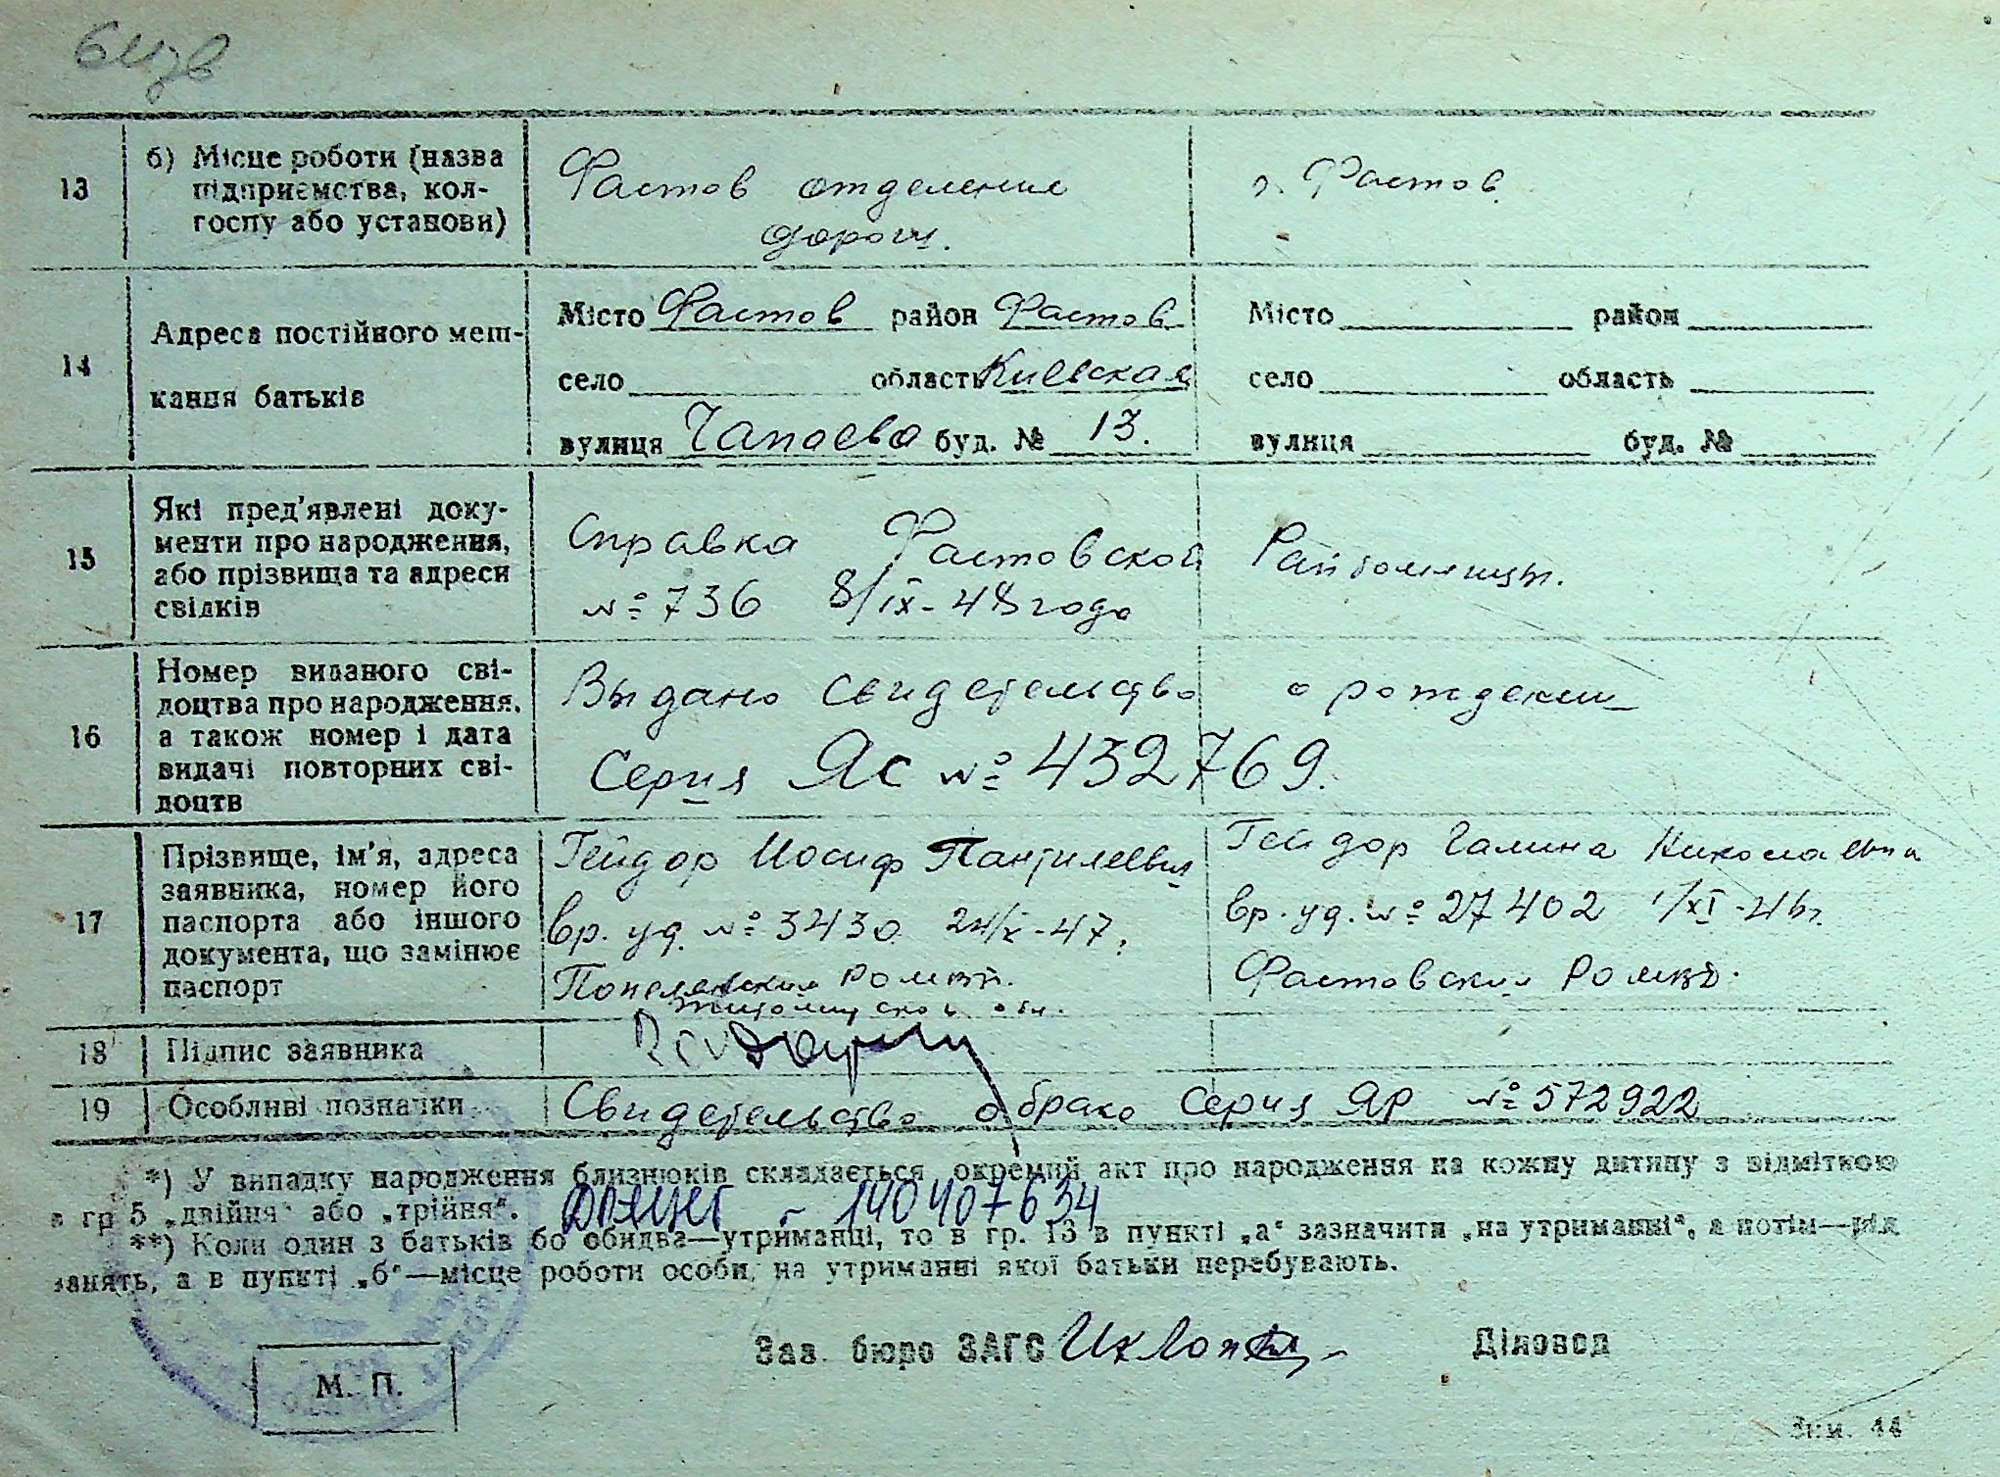 13
б) Місце роботи (назва
підприємства, кол-
госпу або установи)
Фастов отделение
дороги.
г. Фастов
14
Адреса постійного меш-
кання батьків
Місто Фастов район Фастов
село область Киевская
вулиця Чапаева буд. № 13.
Місто район
село область
вулиця буд. №
15
Які пред'явлені доку-
менти про народження,
або прізвища та адреси
свідків
Справка Фастовской Райбольницы.
№ 736 8/IX-48 года
16
Номер виданого сві-
доцтва про народження,
а також номер і дата
видачі повторних сві-
доцтв
Выдано свидетельство о рождении
Серия ЯС № 432769.
17
Прізвище, ім'я, адреса
заявника, номер його
паспорта або іншого
документа, що замінює
паспорт
Гейдор Иосиф Пантилеевич
вр. уд. № 3430 24/X-47г.
Гейдор Галина Николаевна
вр. уд. № 27402 1/XI-46г.
Фастовским РОМВД.
18
Підпис заявника
19
Особливі позначки
Свидетельство о браке Серия ЯР № 572922
*) У випадку народження близнюків складається окремий акт про народження на кожну дитину з відміткою
в гр 5 „двійня“ або „трійня“.
140407634
**) Коли один з батьків бо обидва—утриманці, то в гр. 13 в пункті „а“ зазначити „на утриманні“, а потім—рід
занять, а в пункті „б“—місце роботи особи, на утриманні якої батьки перебувають.
Зав. бюро ЗАГС
Діловод
М. П.